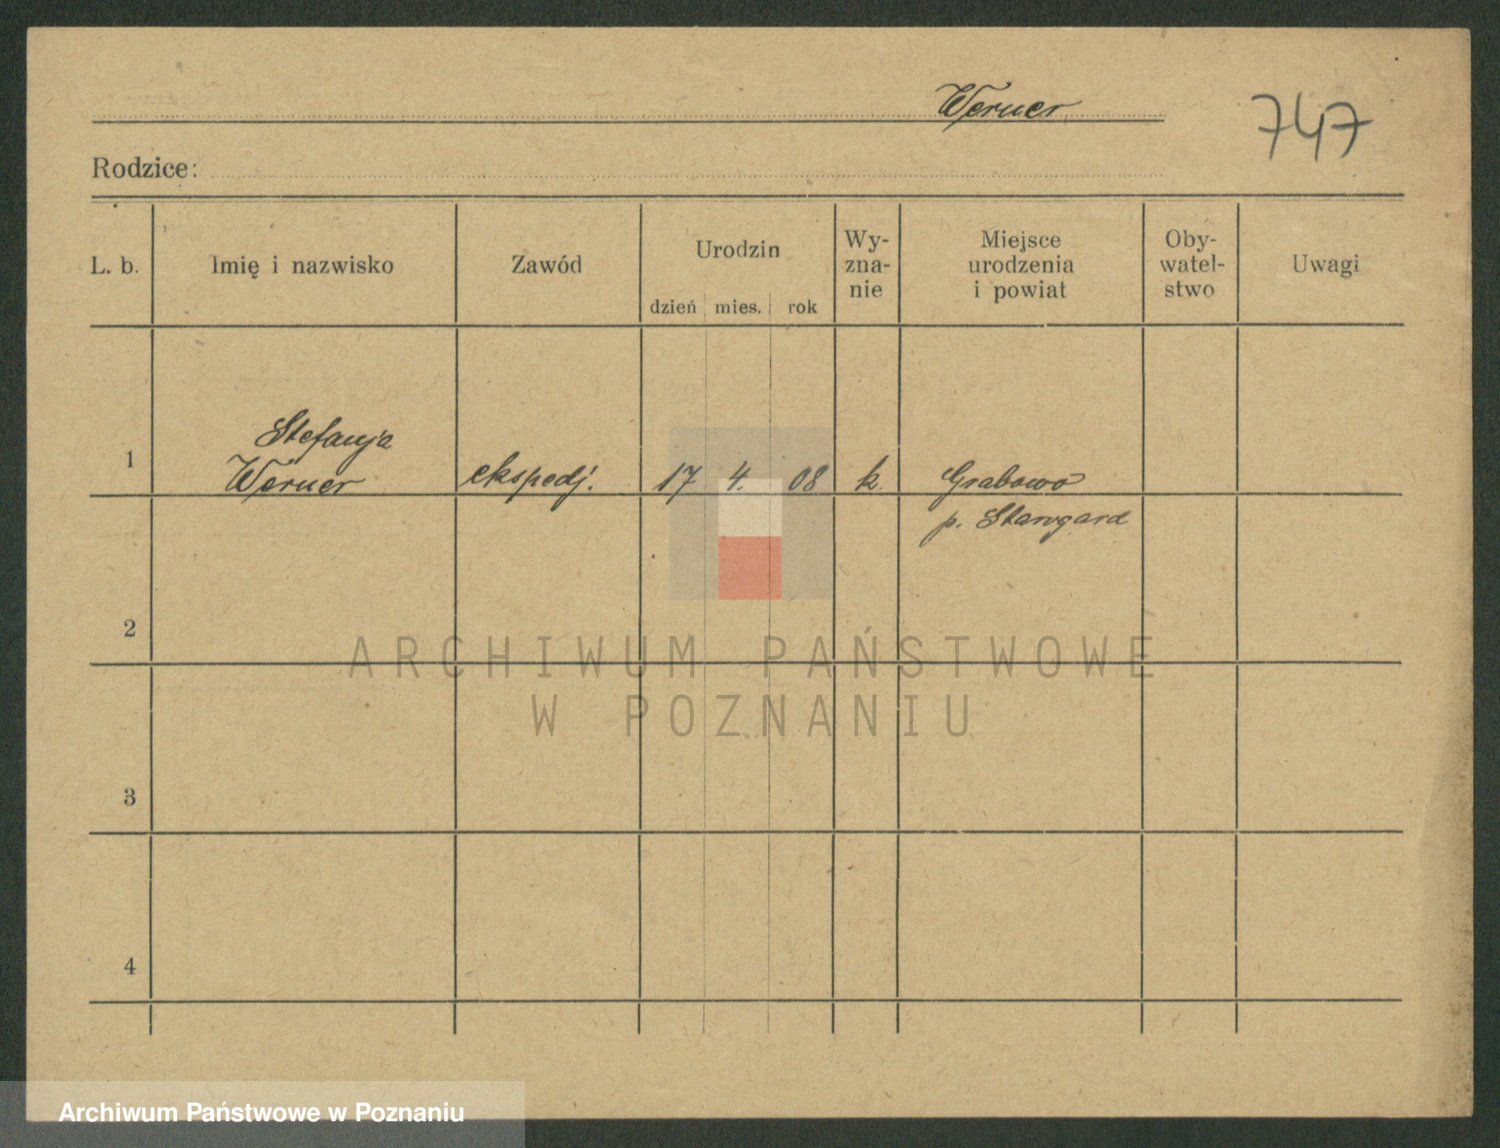 Werner
747
Rodzice:
L. b. Imię i nazwisko Zawód Urodzin dzień mies. rok Wy-
zna-
nie Miejsce
urodzenia
i powiat Oby-
watel-
stwo Uwagi
Stefanja
1 Werner ekspedj. 17 4. 08 k. Grabowo
p. Starogard
2
ARCHIWUM PAŃSTWOWE
W POZNANIU
3
4
Archiwum Państwowe w Poznaniu